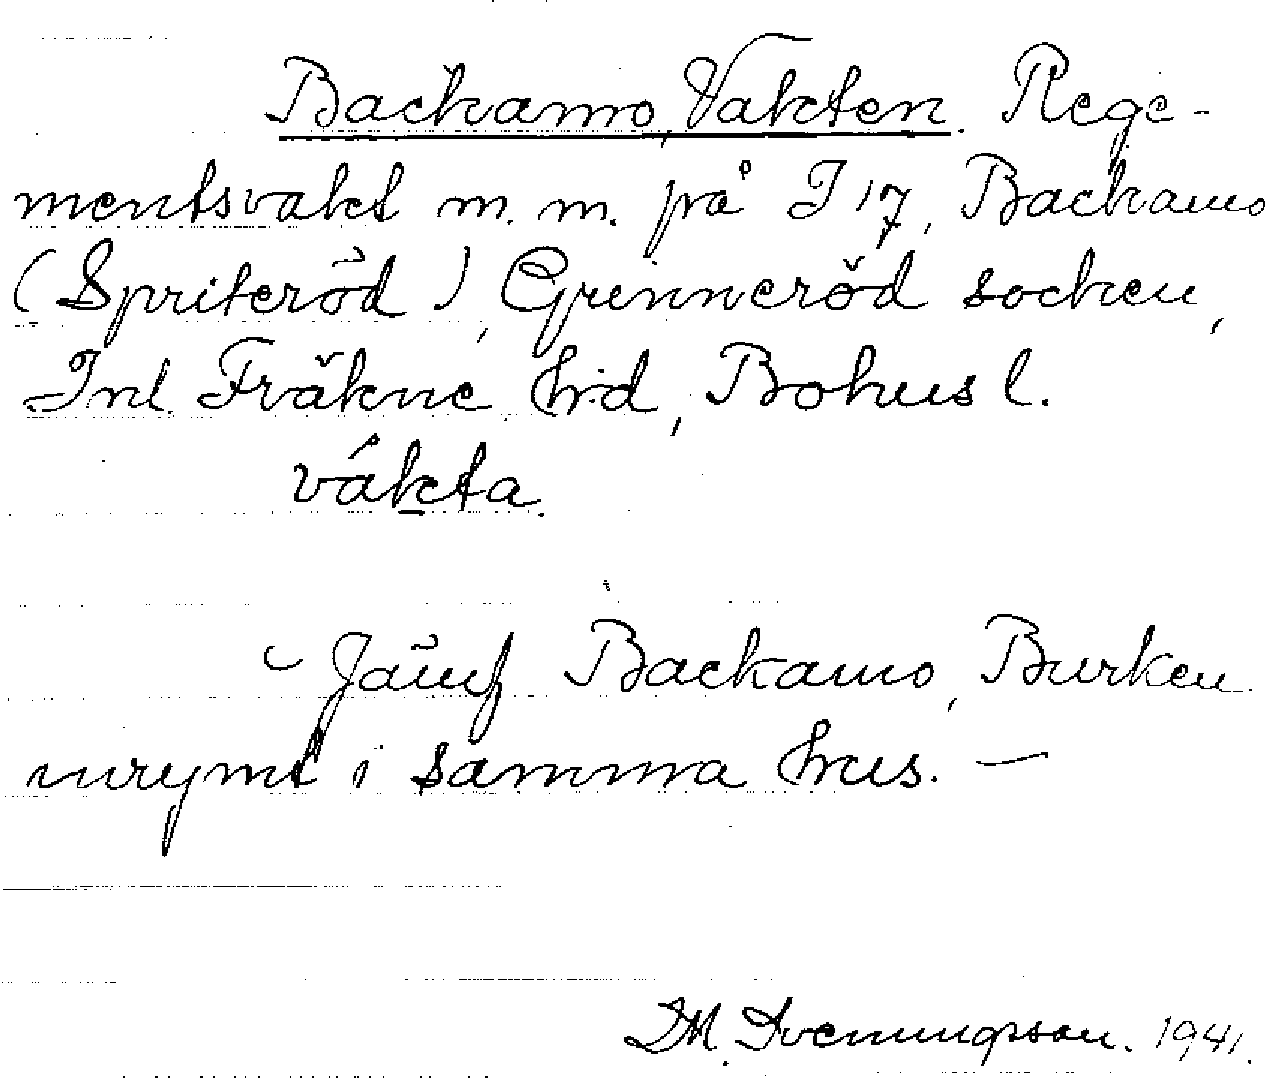 Backamo, Vakten. Rege-
mentsvakt m. m. på I 17, Backamo
(Spriteröd), Grinneröd socken,
Inl. Fräkne hrd, Bohus l.
vákta.
Jämf Backamo, Burken
inrymt i samma hus. —
D.M. Svenningsson. 1941.